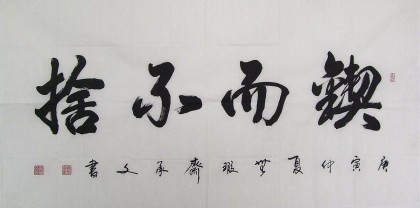 鍥而不捨
庚寅仲夏無瑕齋承文書